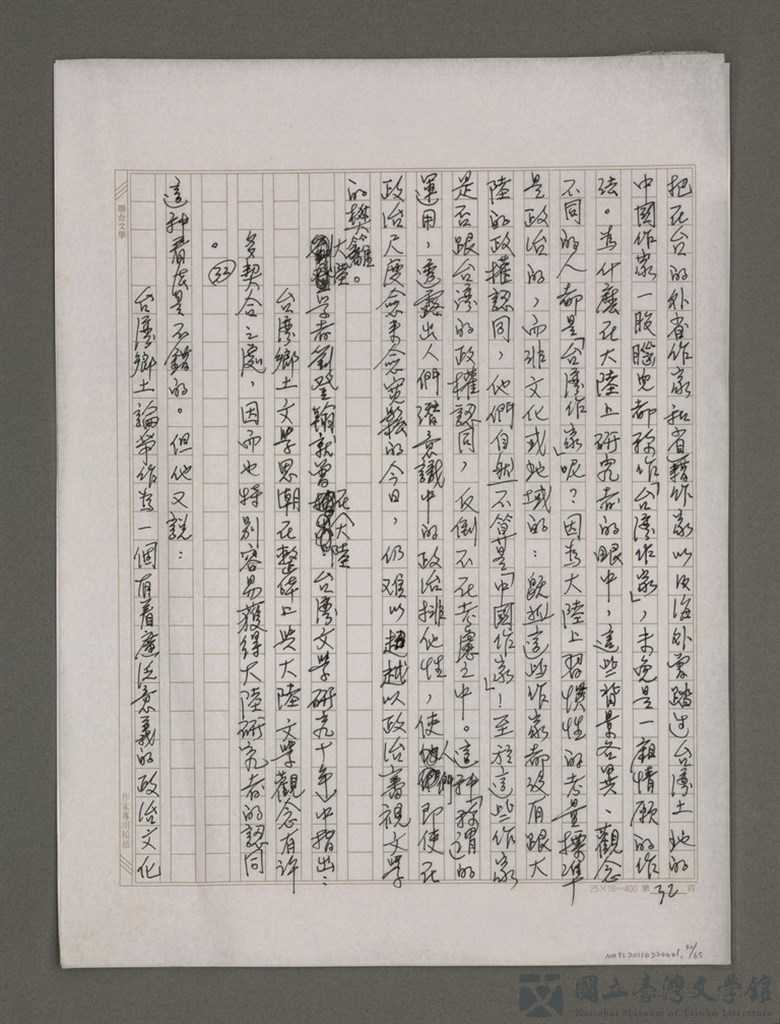 把在台的外省作家和省籍作家以及海外曾踏過台灣土地的
中國作家一股腦兒都稱作「台灣作家」,未免是一廂情願的作
法。為什麼在大陸上研究者的眼中,這些背景各異、觀念
不同的人都是「台灣作家」呢?因為大陸上習慣性的考量標準
是政治的,而非文化或地域的:既然這些作家都沒有跟大
陸的政權認同,他們自然不算是「中國作家」!至於這些作家
是否跟台灣的政權認同,反倒不在考慮之中。這種「稱謂」的
運用,透露出人們潛意識中的政治排他性,使人們即使在
政治尺度愈來愈寬鬆的今日,仍難以超越以政治審視文學
的樊籬。
大陸學者劉登翰就曾在〈大陸台灣文學研究十年〉中指出:
台灣鄉土文學思潮在整體上與大陸文學觀念有許
多契合之處,因而也特別容易獲得大陸研究者的認同
。㉜
這種看法是不錯的。但他又說:
台灣鄉土論爭作為一個有着廣泛意義的政治文化
聯合文學
作家專用稿紙
25×16=400 第 32 頁
NMTL20110220001, 32/65
國立臺灣文學館
National Museum of Taiwan Literature